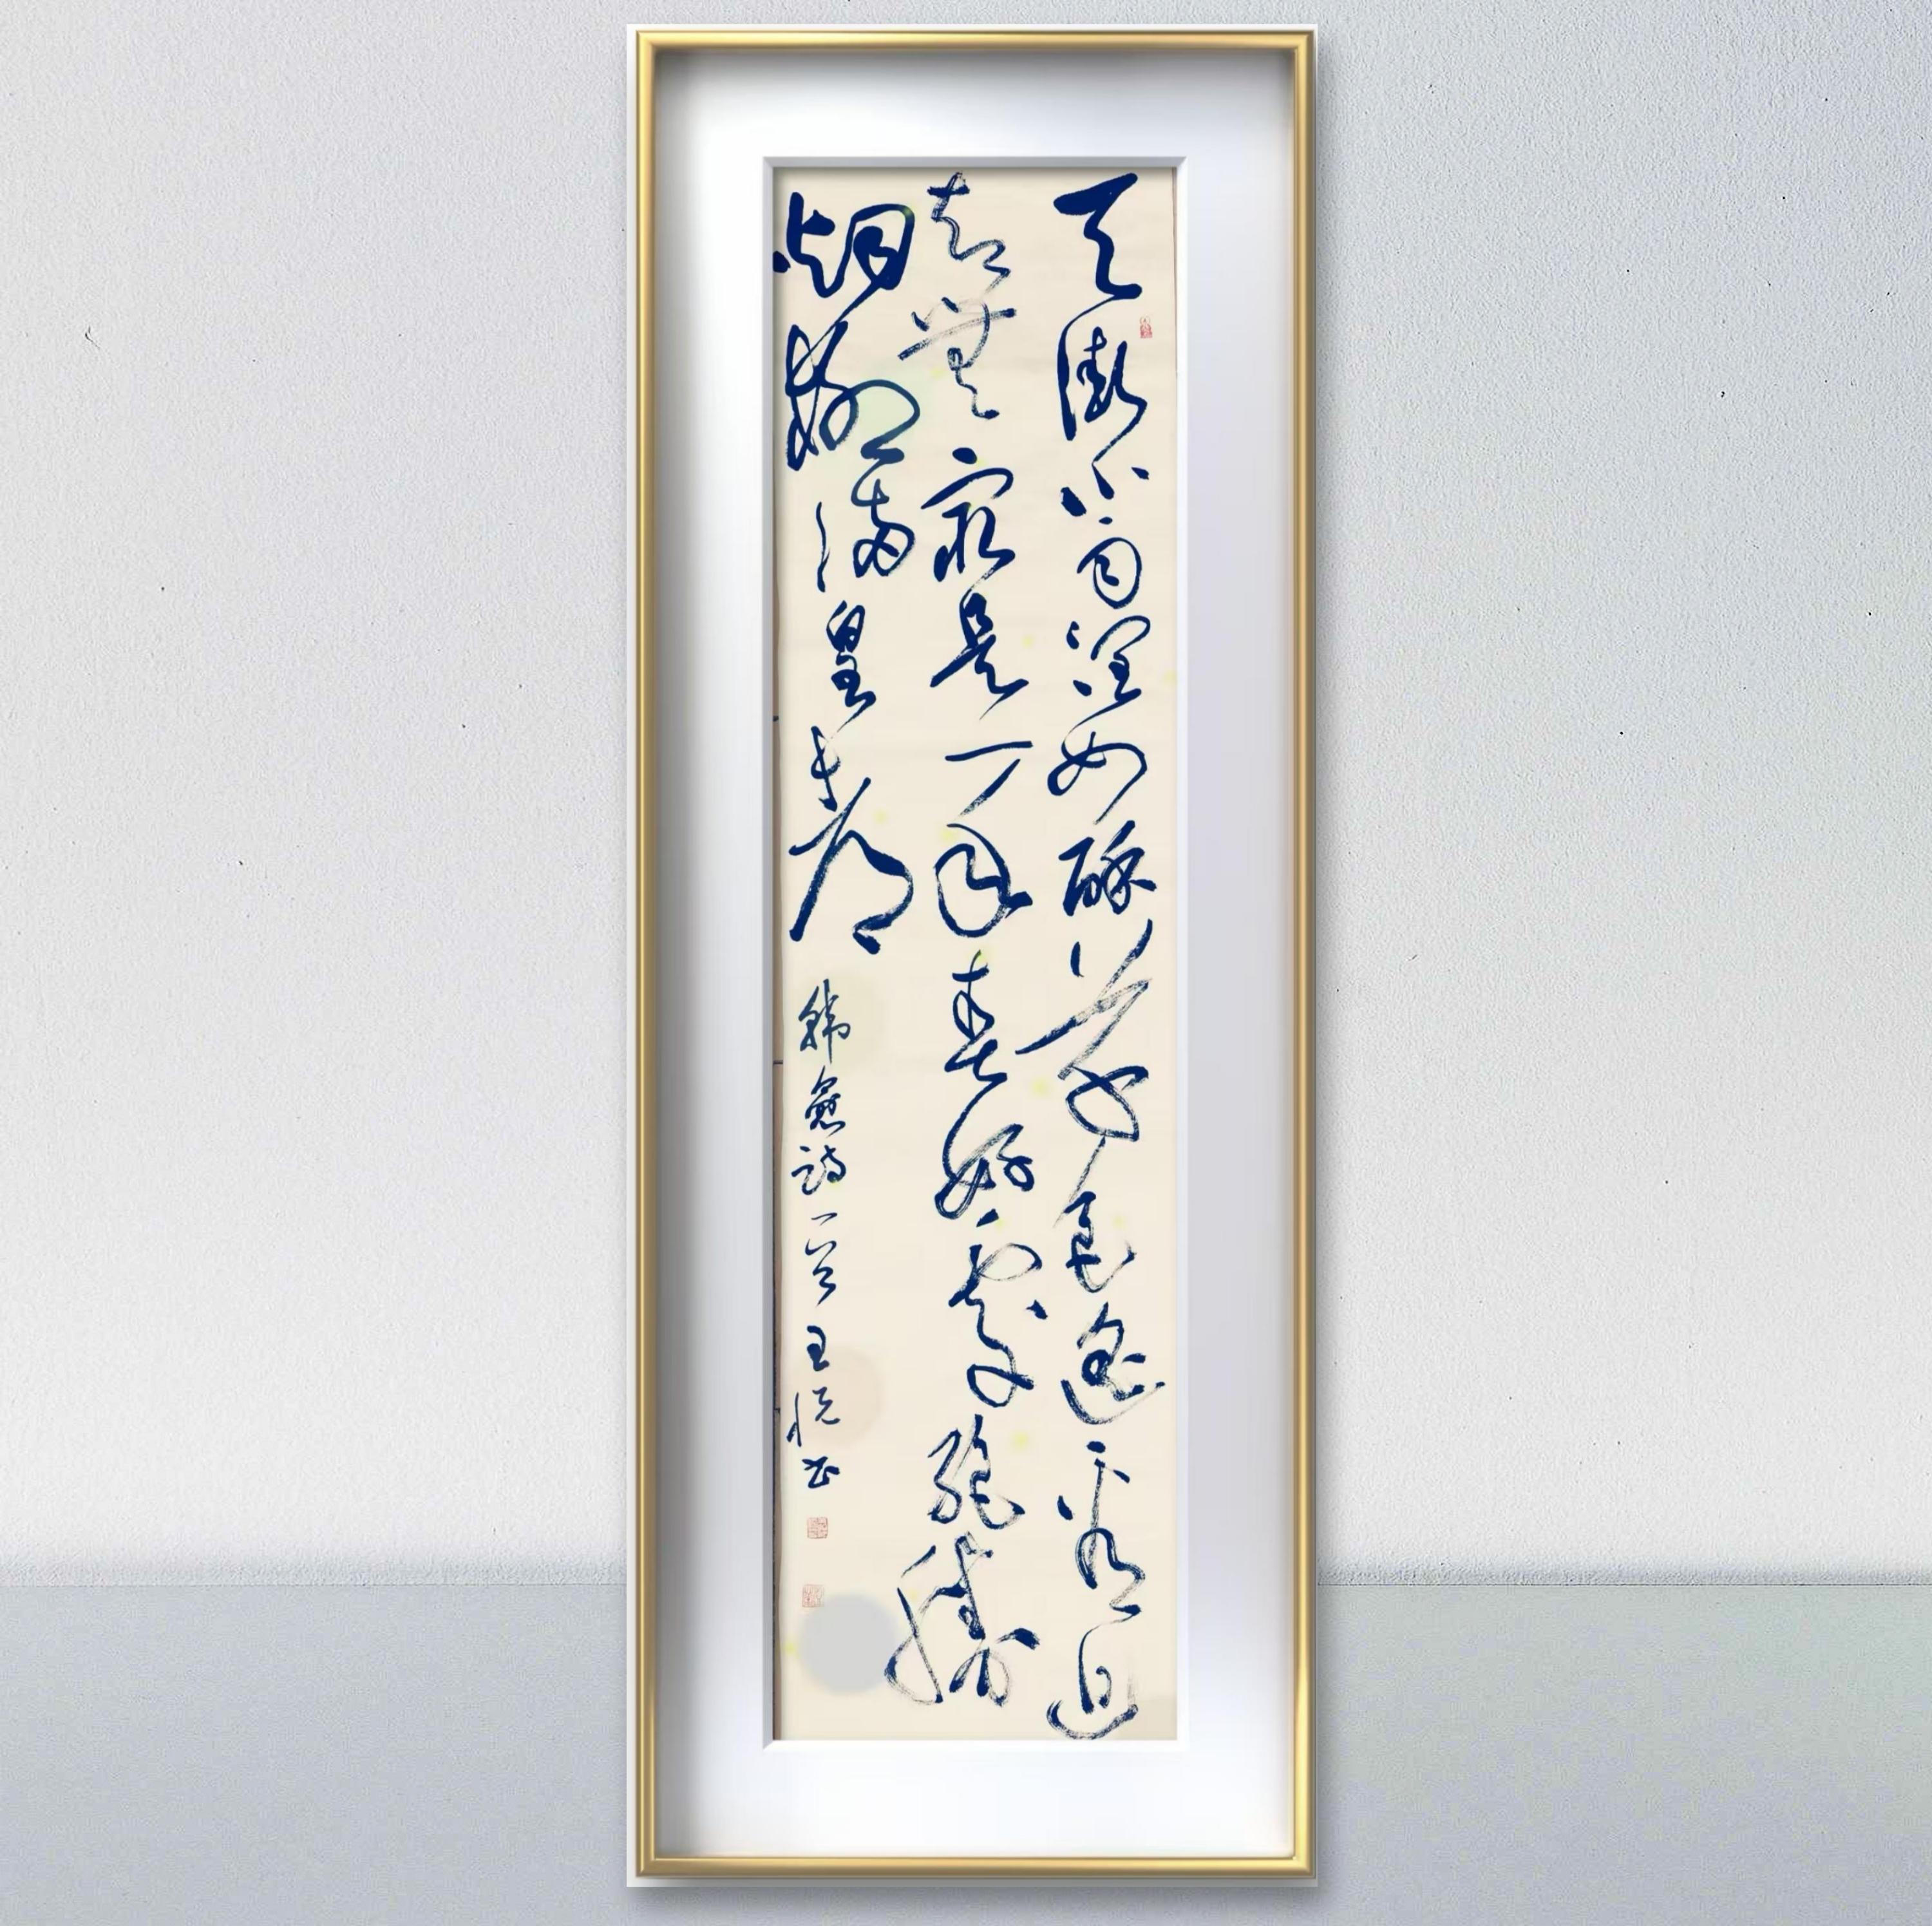 天街小雨潤如酥草色遙看近
却無最是一年春好處絕勝
烟柳滿皇都 韓愈詩一首 王悦书